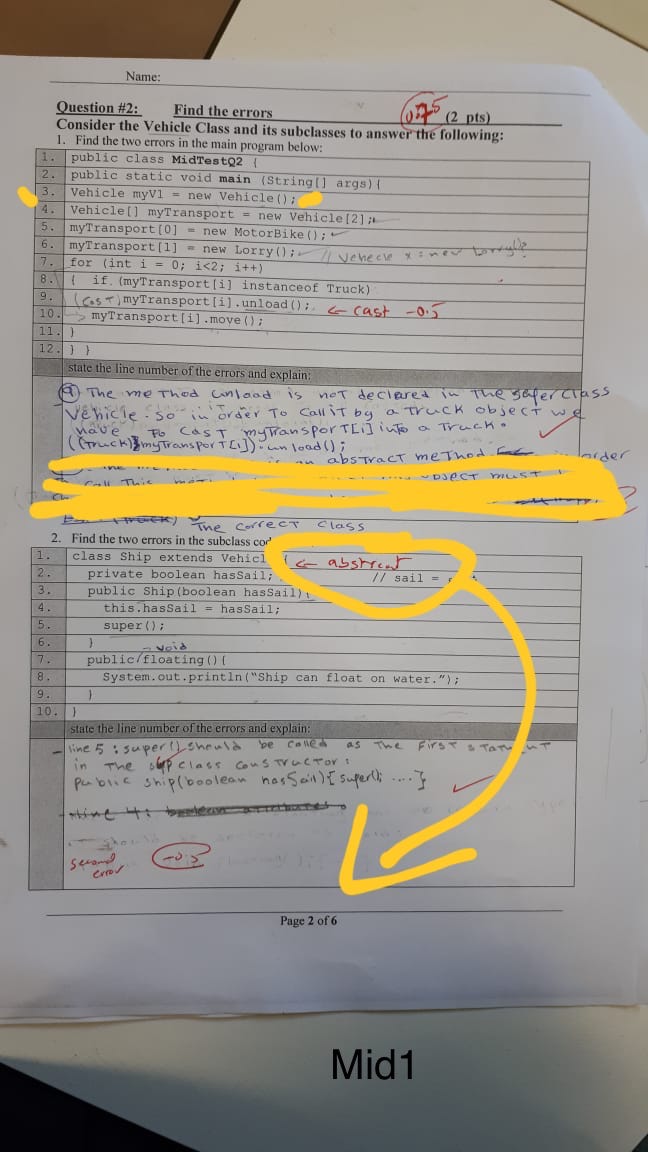 Name:
Question #2: Find the errors (2 pts)
Consider the Vehicle Class and its subclasses to answer the following:
1. Find the two errors in the main program below:
1. public class MidTestQ2 {
2. public static void main (String[] args){
3. Vehicle myV1 = new Vehicle();
4. Vehicle[] myTransport = new Vehicle[2];
5. myTransport[0] = new MotorBike();
6. myTransport[1] = new Lorry(); // Vehecle x = new Lorry();
7. for (int i = 0; i<2; i++)
8. { if (myTransport[i] instanceof Truck)
9. (cast) myTransport[i].unload(); ← cast -0.5
10. myTransport[i].move();
11. }
12. } }
state the line number of the errors and explain:
9 The method unload is not declared in the super class
Vehicle. so in order to call it by a truck object we
have to cast myTransport[i] into a Truck.
((Truck) myTransport[i]).unload();
abstract method order
call This object must
The correct class
2. Find the two errors in the subclass
1. class Ship extends { ← abstract
2. private boolean hasSail; // sail =
3. public Ship(boolean hasSail){
4. this.hasSail = hasSail;
5. super();
6. }
void
7. public/floating(){
8. System.out.println("Ship can float on water.");
9. }
10. }
state the line number of the errors and explain:
- line 5 : super() should be called as the first statment
in the class constructor:
public ship(boolean hasSail){ super(); ....}
second -0.5
error
Page 2 of 6
Mid1